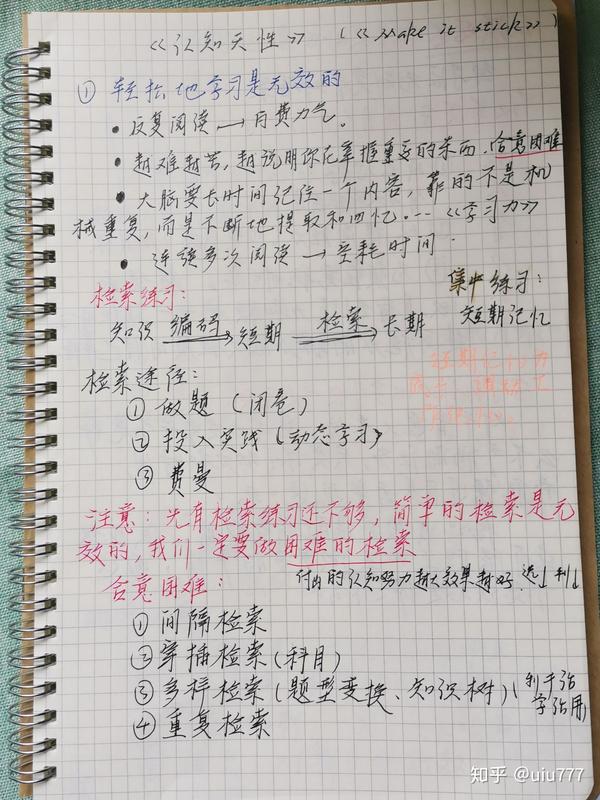 《认知天性》 (《Make it stick》)
① 轻松地学习是无效的
• 反复阅读 → 白费力气。
• 越难越苦,越说明你在掌握重要的东西.合意困难
• 大脑要长时间记住一个内容,靠的不是机
械重复,而是不断地提取和回忆.--《学习力》
• 连续多次阅读 → 空耗时间.
检索练习:
集中练习:
短期记忆
知识 编码→ 短期 检索→ 长期
检索途径:
① 做题(闭卷)
② 投入实践(动态学习)
③ 费曼
注意:光有检索练习还不够,简单的检索是无
效的,我们一定要做困难的检索
合意困难:
付出的认知努力越大效果越好.
① 间隔检索
② 穿插检索(科目)
③ 多样检索(题型变换、知识树)(利于活
学活用)
④ 重复检索
知乎 @uiu777